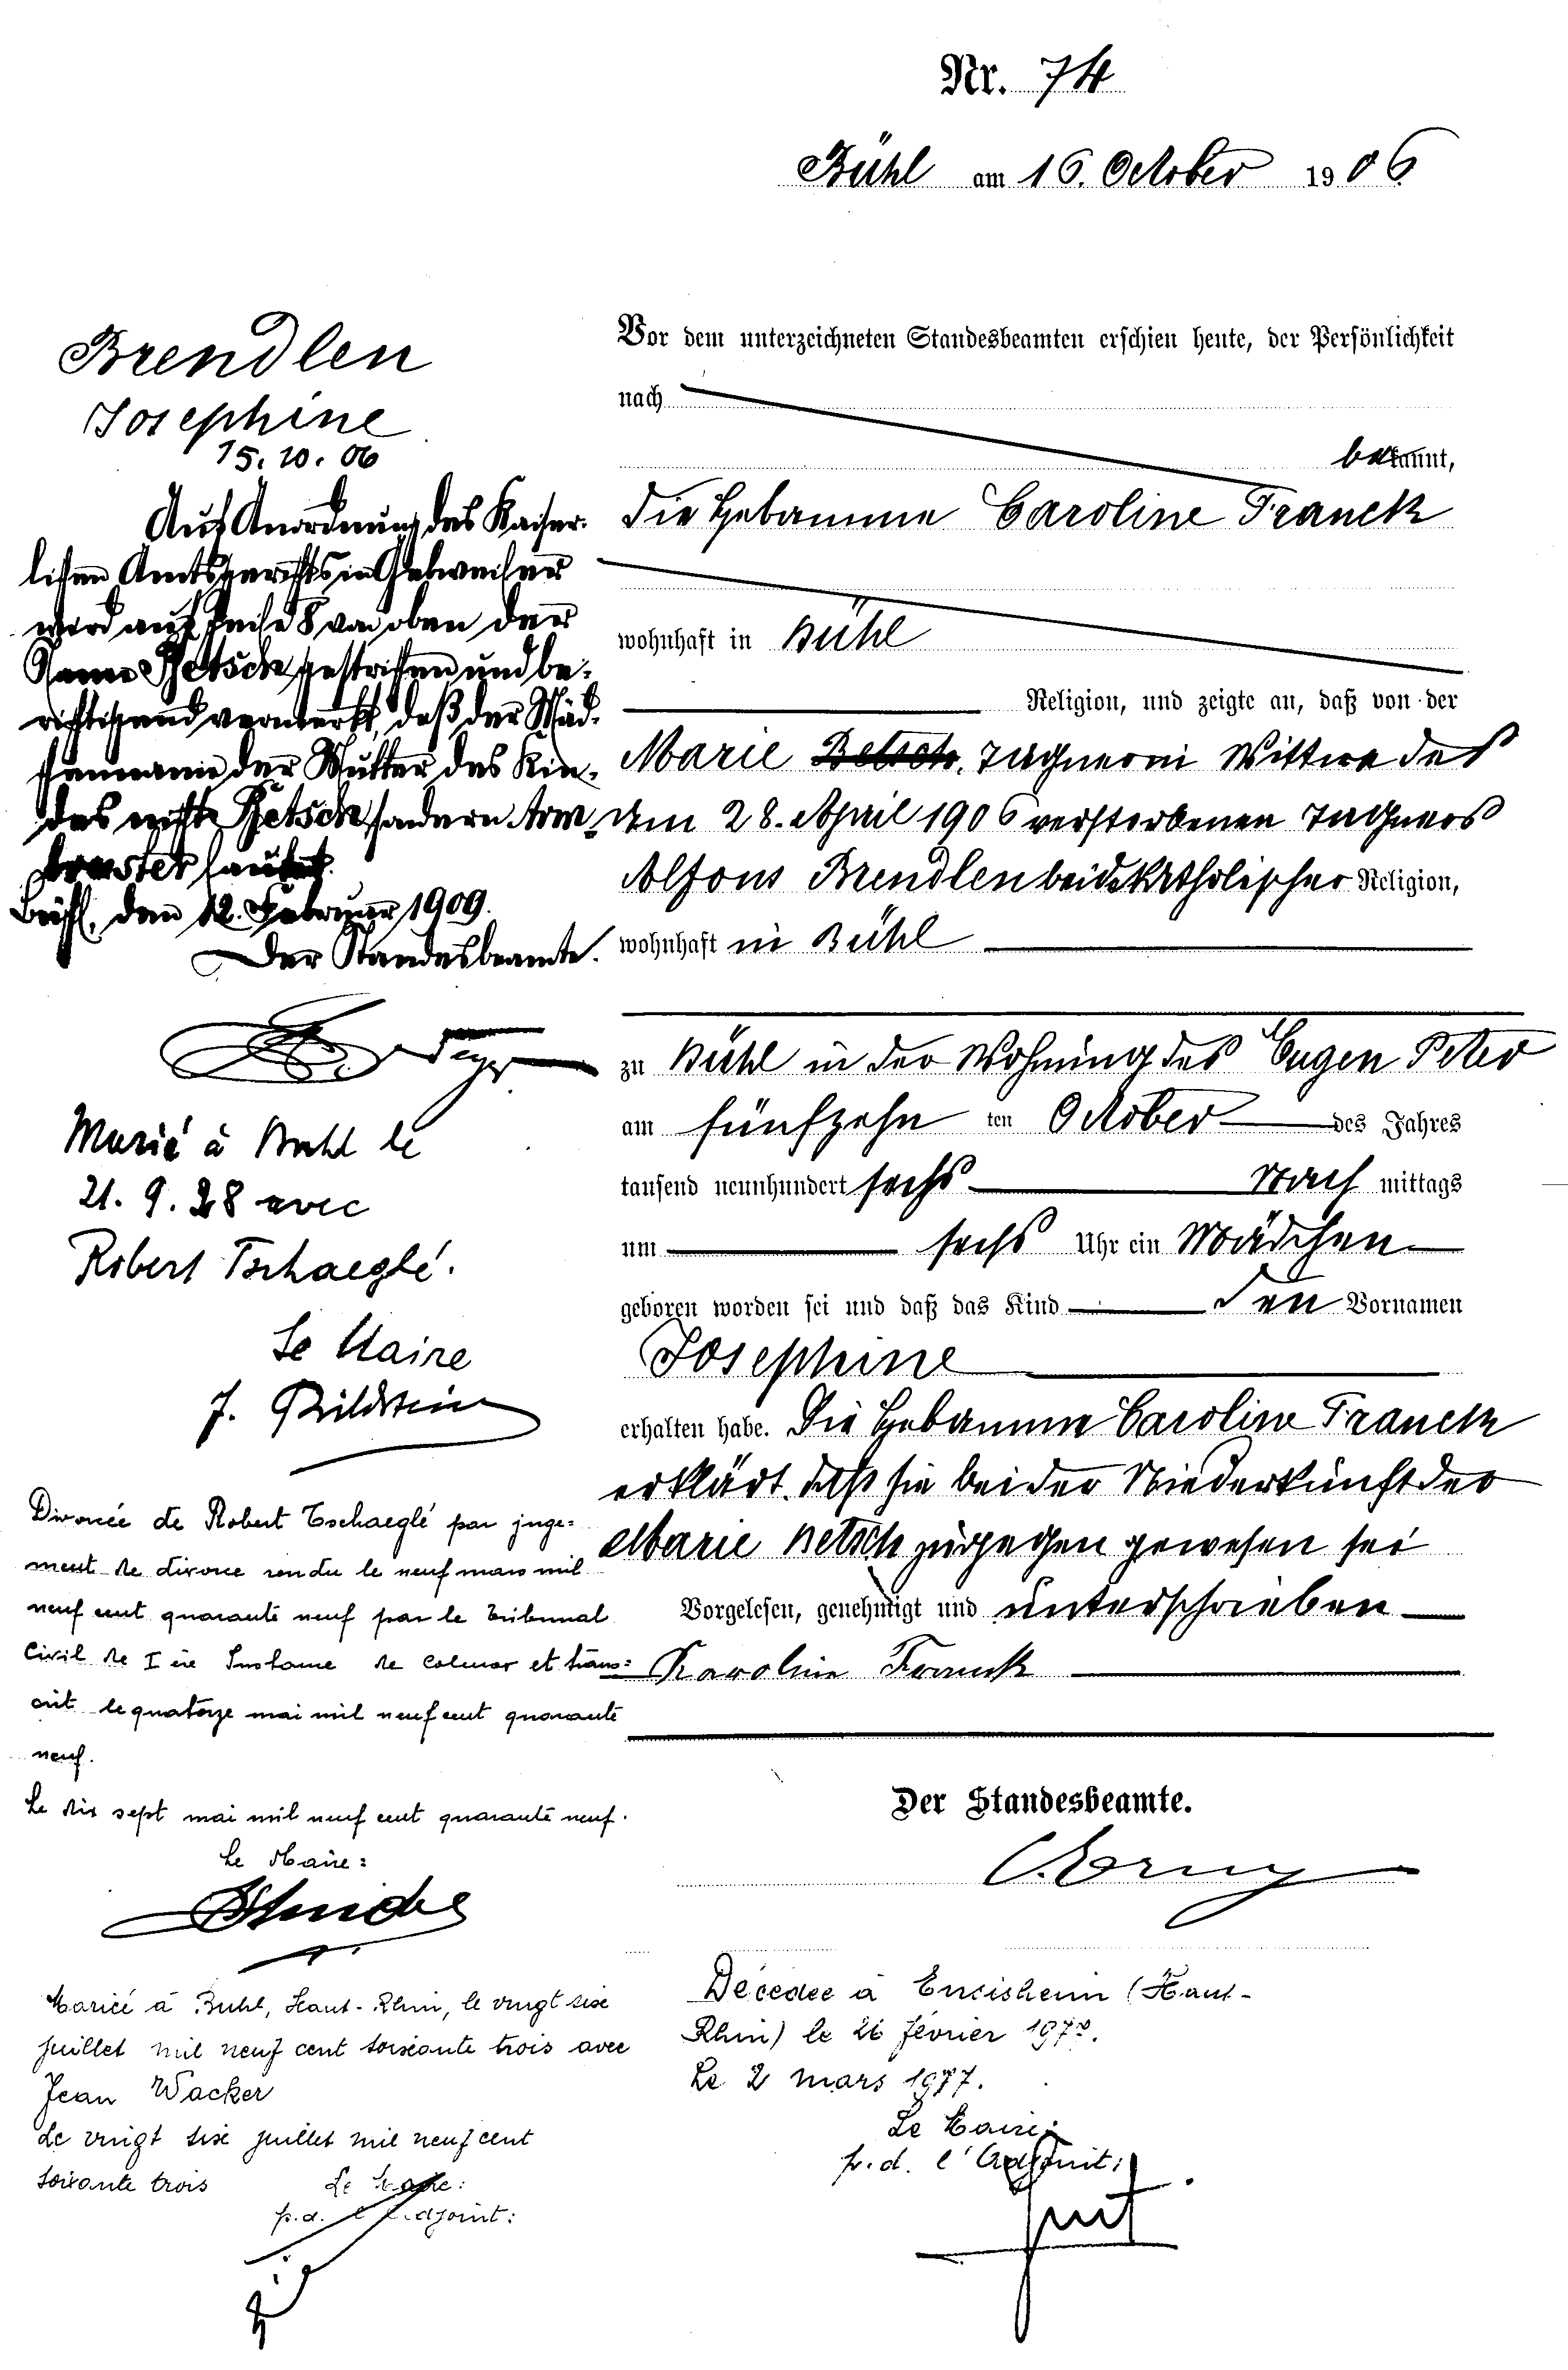 Nr. 74
Bühl am 16. October 1906
Brendlen
Josephine
15. 10. 06
Auf Anordnung des Kaiser-
lichen Amtsgerichts in Gebweiler
wird auf Zeile 8 von oben der
Name Betsch gestrichen und be-
richtigend vermerkt, daß der Mäd-
chenname der Mutter des Kin-
des nicht Betsch sondern Arm-
bruster lautet.
Bühl, den 12. Februar 1909.
Der Standesbeamte.
Marié à Buhl le
21. 9. 28 avec
Robert Tschaeglé.
Le Maire
J. Bildstein
Divorcée de Robert Tschaeglé par juge=
ment de divorce rendu le neuf mars mil
neuf cent quarante neuf par le Tribunal
Civil de I ère Instance de Colmar et trans=
crit le quatorze mai mil neuf cent quarante
neuf.
Le dix sept mai mil neuf cent quarante neuf.
Le Maire:
Mariée à Buhl, Haut-Rhin, le vingt six
juillet mil neuf cent soixante trois avec
Jean Wacker
Le vingt six juillet mil neuf cent
soixante trois Le Maire:
p.d. l'Adjoint:
Vor dem unterzeichneten Standesbeamten erschien heute, der Persönlichkeit
nach
bekannt,
die Hebamme Caroline Franck
wohnhaft in Bühl
Religion, und zeigte an, daß von der
Marie Betsch, Tagnerin Wittwe des
am 28. April 1906 verstorbenen Tagners
Alfons Brendlen beide katholischer Religion,
wohnhaft in Bühl
zu Bühl in der Wohnung des Eugen Peter
am fünfzehn ten October des Jahres
tausend neunhundert sechs Nach mittags
um sechs Uhr ein Mädchen
geboren worden sei und daß das Kind den Vornamen
Josephine
erhalten habe. Die Hebamme Caroline Franck
erklärt, daß sie bei der Niederkunft der
Marie Betsch zugegen gewesen sei
Vorgelesen, genehmigt und unterschrieben
Karoline Franck
Der Standesbeamte.
Décédée à Ensisheim (Haut-
Rhin) le 26 février 1977.
Le 2 mars 1977.
Le Maire:
p.d. l'Adjoint: